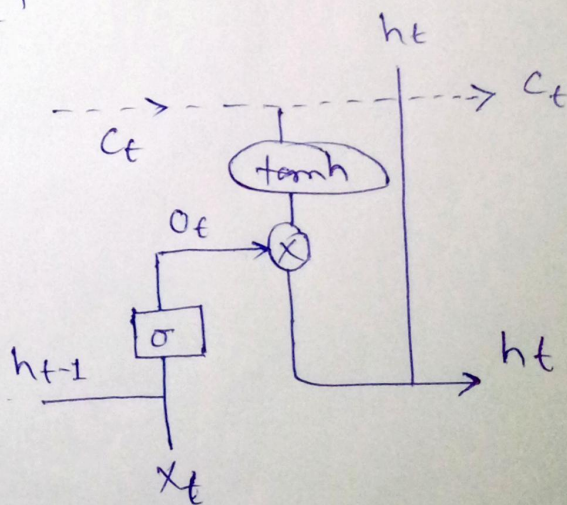 ht
Ct
Ct
tanh
Ot
X
σ
ht-1
ht
Xt